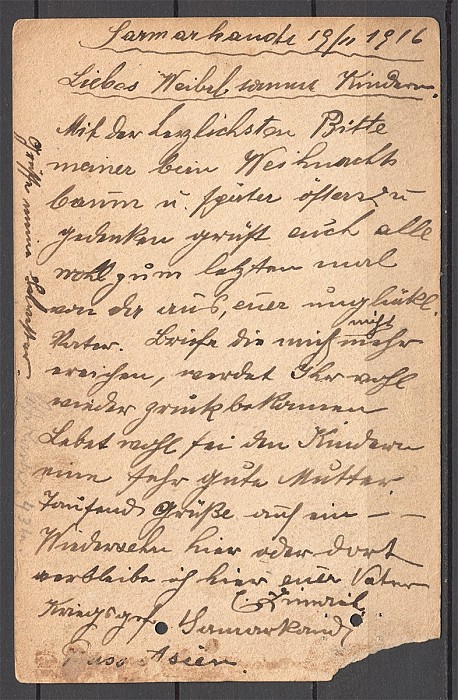 Sarmarkandt 19/11 1916
Liebes Weibel sammt Kindern.
Mit der herzlichsten Bitte
meiner beim Weihnachts
baum u. später öfters zu
gedenken grüßt euch alle
wohl zum letzten mal
von da aus, euer unglükl.
Vater. Briefe die mich nicht mehr
ereichen, werdet Ihr wohl
wieder zurükbekomen
Lebet wohl sei den Kindern
eine sehr gute Mutter
Tausend Grüße auf ein — —
Wiedersehn hier oder dort
verbleibe ich hier euer Vater
Kriegsgef. Samarkand
Russ Asien.
Grüße meine